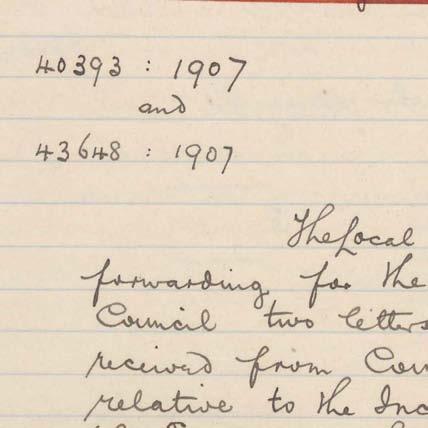 40393 : 1907
and
43648 : 1907
The Local
forwarding for the
Council two letters
received from Cou
relative to the Inc